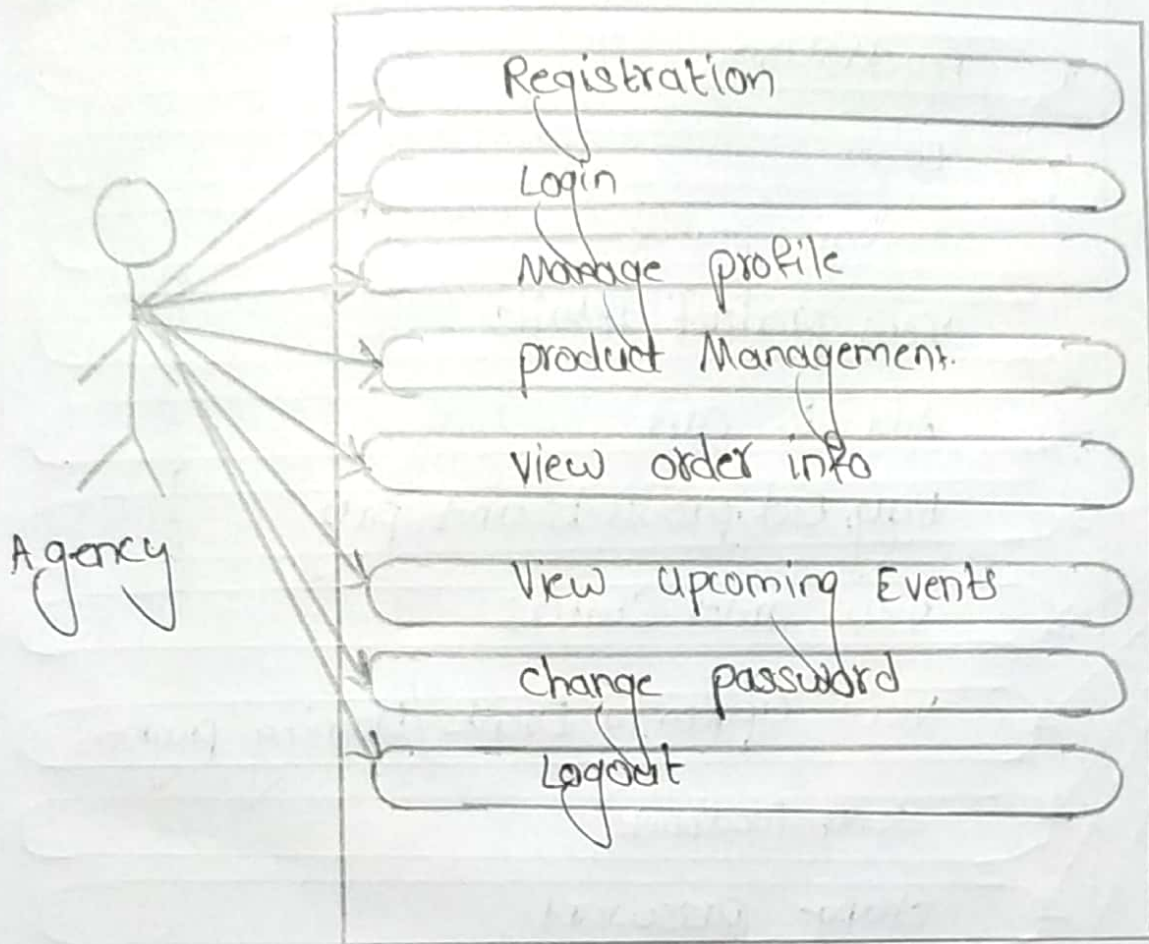 Registration
Login
Manage profile
product Management.
View order info
View upcoming Events
change password
Logout
Agency